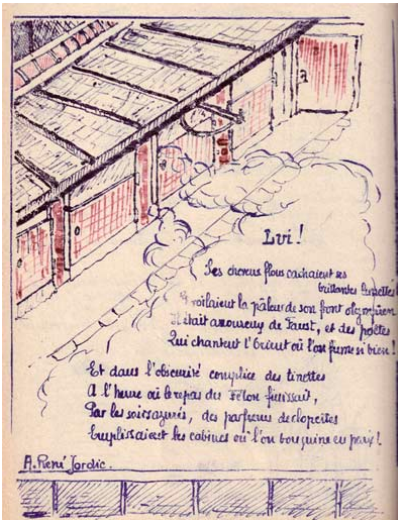 Lui !
Ses cheveux flous cachaient ses
brillantes
Et voilaient la pâleur de son front olympien
Il était amoureux de Faust, et des poètes
Qui chantent l'Orient où l'on fume si bien !
Et dans l'obscurité complice des tinettes
A l'heure où le repas du Félon finissait,
Par les soirs azurés, des parfums de clopettes
Emplissaient les cabines où l'on bouquine en paix !
A. René Jordic.